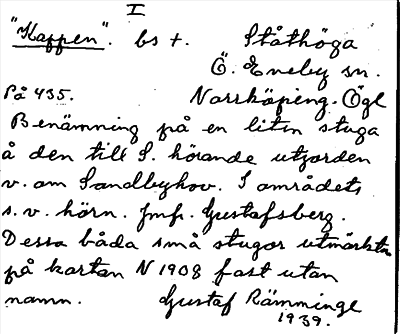 I
"Kappen". bs +. Ståthöga
Ö. Eneby sn.
På 435. Norrköping. Ögl
Benämning på en liten stuga
å den till S. hörande utjorden
v. om Sandbyhov. I områdets
s.v. hörn. Jmfr. Gustafsberg.
Dessa båda små stugor utmärkta
på kartan N 1908 fast utan
namn. Gustaf Rämminge
1939.